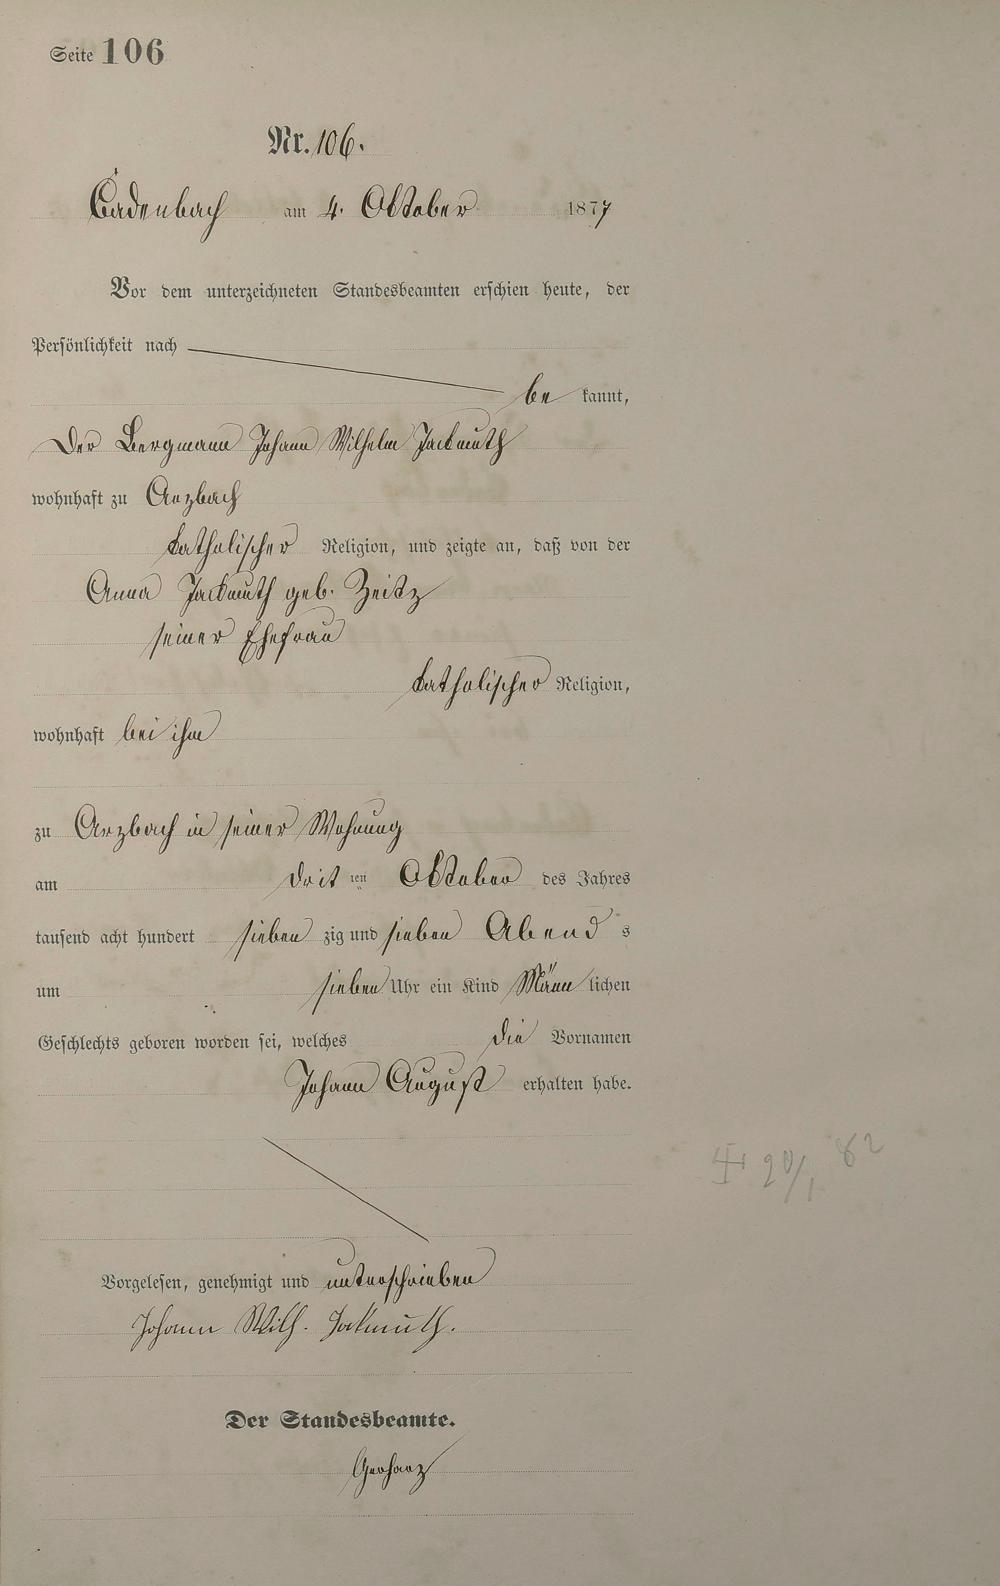 Seite 106
Nr. 106.
Cadenbach am 4. Oktober 1877
Vor dem unterzeichneten Standesbeamten erschien heute, der
Persönlichkeit nach
be kannt,
Der Bergmann Johann Wilhelm Jackmuth
wohnhaft zu Arzbach
katholischer Religion, und zeigte an, daß von der
Anna Jackmuth geb. Zeitz
seiner Ehefrau
katholischer Religion,
wohnhaft bei ihm
zu Arzbach in seiner Wohnung
am drit ten Oktober des Jahres
tausend acht hundert sieben zig und sieben Abend s
um sieben Uhr ein Kind Männ lichen
Geschlechts geboren worden sei, welches die Vornamen
Johann August erhalten habe.
20/1 82
Vorgelesen, genehmigt und unterschrieben
Johann Wilh. Jakmuth.
Der Standesbeamte.
Gerharz